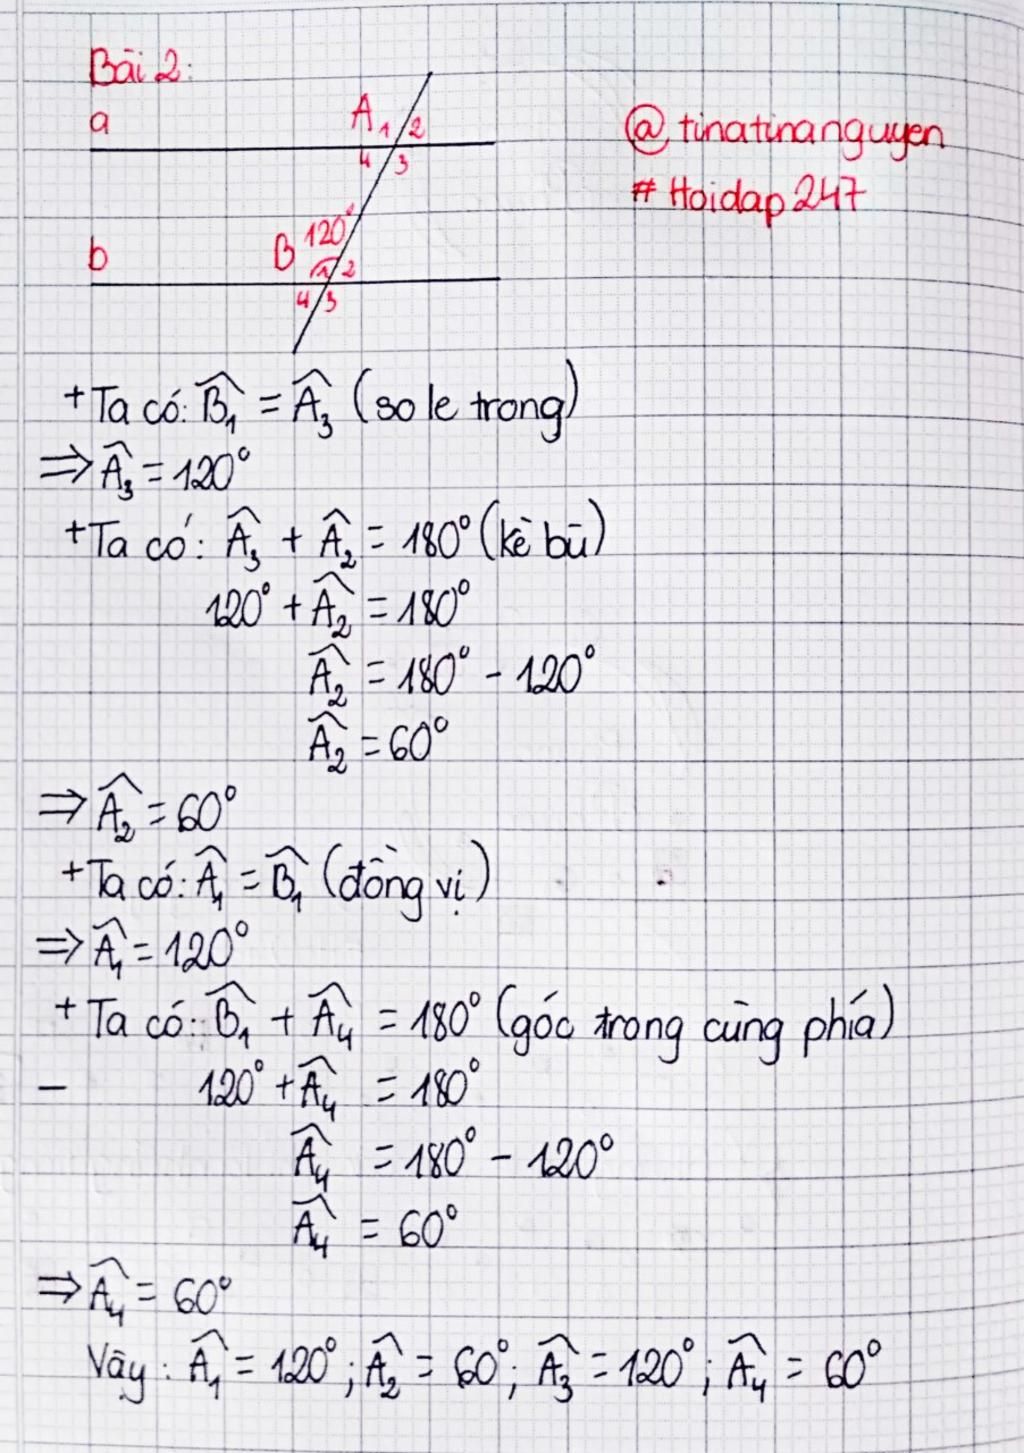 Bài 2:
a
A 1 2
4 3
@ tinatinanguyen
# Hoidap 247
b
B 120°
1 2
4 3
+ Ta có: B̂₁ = Â₃ (so le trong)
⇒ Â₃ = 120°
+ Ta có: Â₃ + Â₂ = 180° (kề bù)
120° + Â₂ = 180°
Â₂ = 180° - 120°
Â₂ = 60°
⇒ Â₂ = 60°
+ Ta có: Â₁ = B̂₁ (đồng vị)
⇒ Â₁ = 120°
+ Ta có: B̂₁ + Â₄ = 180° (góc trong cùng phía)
- 120° + Â₄ = 180°
Â₄ = 180° - 120°
Â₄ = 60°
⇒ Â₄ = 60°
Vậy : Â₁ = 120° ; Â₂ = 60° ; Â₃ = 120° ; Â₄ = 60°